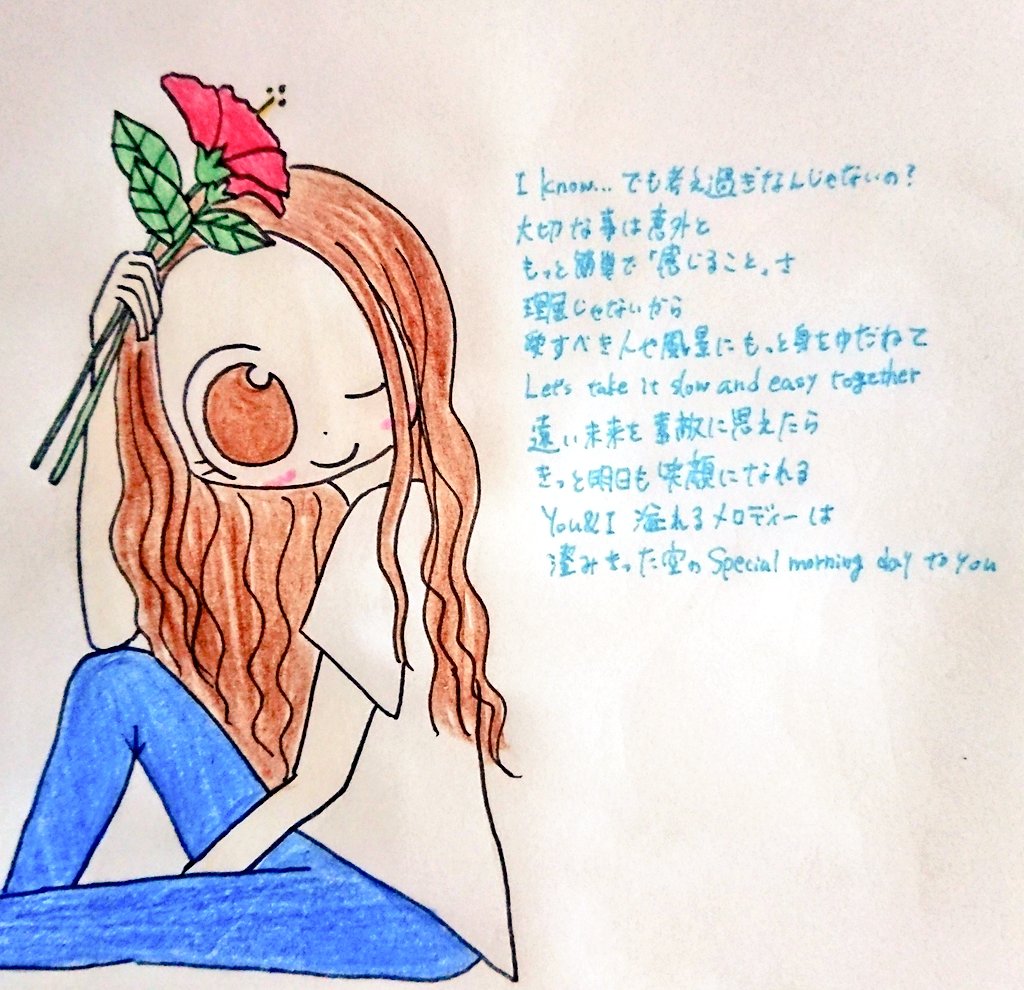 I know... でも考え過ぎなんじゃないの?
大切な事は意外と
もっと簡単で「感じること」さ
理屈じゃないから
愛すべき人や風景にもっと身をゆだねて
Let's take it slow and easy together
遠い未来を素敵に思えたら
きっと明日も笑顔になれる
You&I 溢れるメロディーは
澄みきった空の Special morning day to you